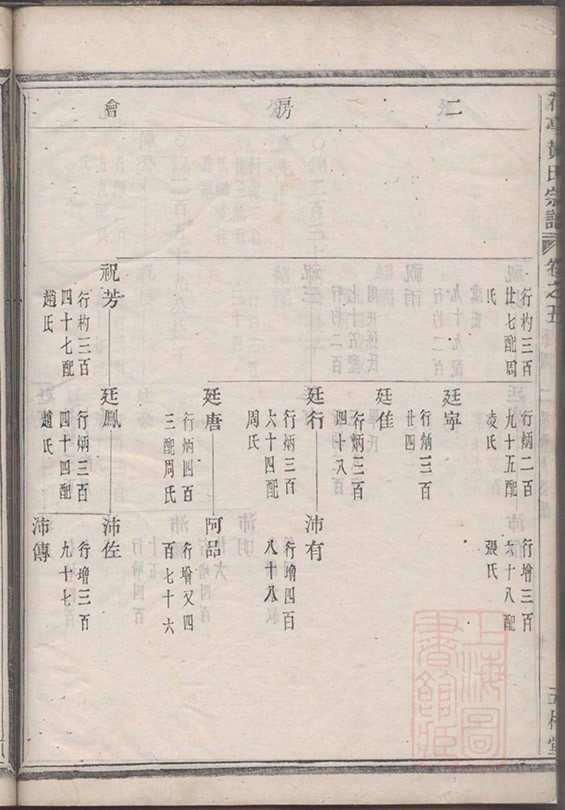 黃氏宗譜
卷之五
二房會
行杓三百
廿七配周
氏
行炳二百
九十五配
凌氏
行增三百
六十八配
張氏
廷寧
行炳三百
廿四
廷佳
行炳三百
四十八
廷行
行炳三百
六十四配
周氏
沛有
行增四百
八十八
廷唐
行炳四百
三配周氏
阿品
行增又四
百七十六
祝芳
行杓三百
四十七配
趙氏
廷鳳
行炳三百
四十四配
趙氏
沛佐
行增三百
九十七
沛傳
上海圖
書館藏